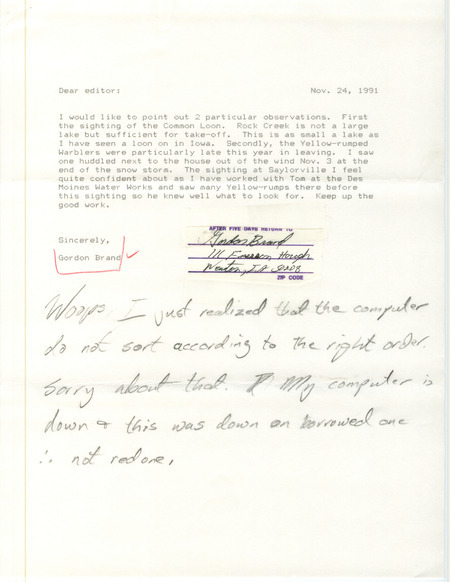 Dear editor: Nov. 24, 1991
I would like to point out 2 particular observations. First
the sighting of the Common Loon. Rock Creek is not a large
lake but sufficient for take-off. This is as small a lake as
I have seen a loon on in Iowa. Secondly, the Yellow-rumped
Warblers were particularly late this year in leaving. I saw
one huddled next to the house out of the wind Nov. 3 at the
end of the snow storm. The sighting at Saylorville I feel
quite confident about as I have worked with Tom at the Des
Moines Water Works and saw many Yellow-rumps there before
this sighting so he knew well what to look for. Keep up the
good work.
Sincerely,
Gordon Brand
AFTER FIVE DAYS RETURN TO
Gordon Brand
Emerson Hough
Newton, IA
ZIP CODE
Woops, I just realized that the computer
do not sort according to the right order.
Sorry about that. My computer is
down & this was down on borrowed one
∴ not redone.